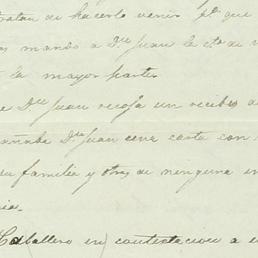 tratan de hacerlo venir pr. que
mandó a Dn. Juan la cta de
la mayor parte
Dn. Juan recoja un recibo
Dn. Juan una carta con
su familia y otras de ninguna
Caballero en contestacion a